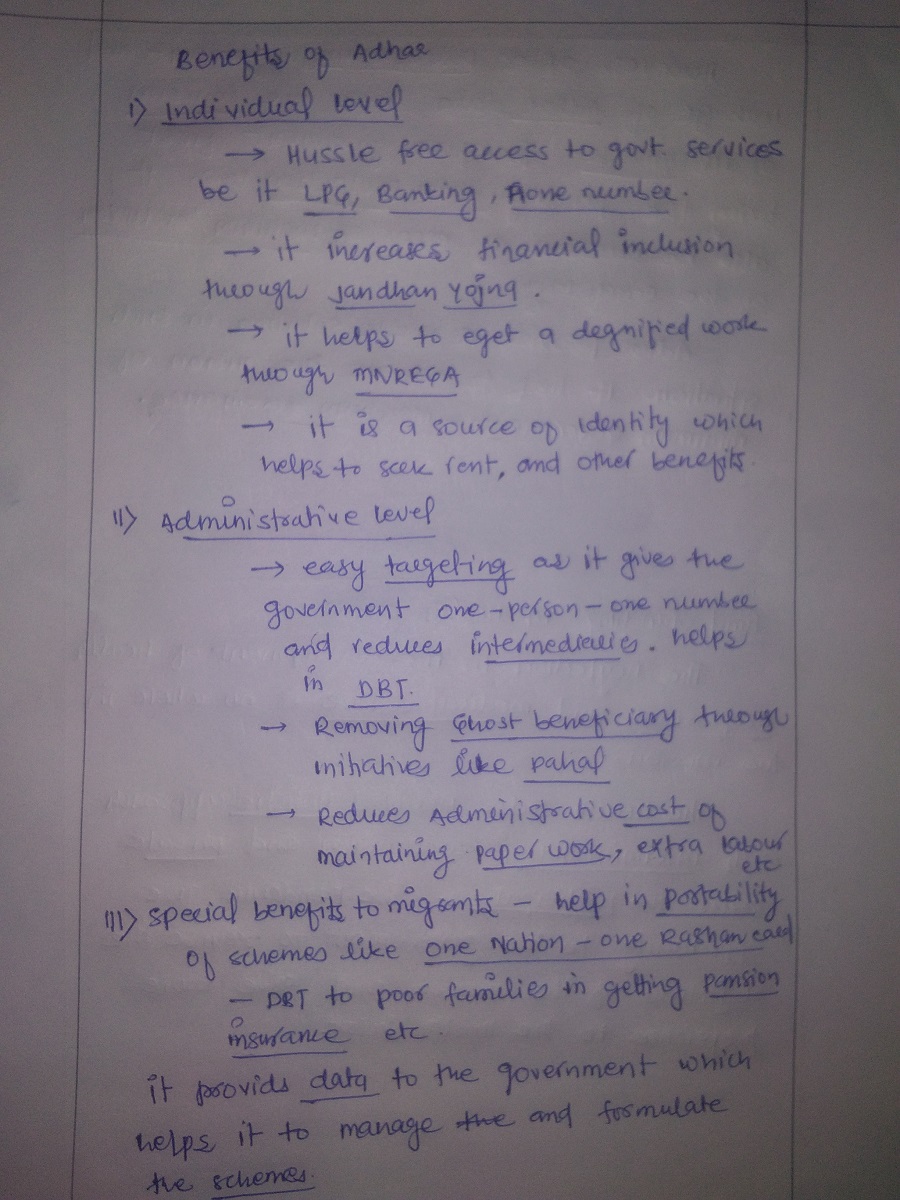 Benefits of Adhar
I) Individual level
→ Hussle free access to govt. services
be it LPG, Banking, Phone number.
→ it increases financial inclusion
through Jandhan Yojna.
→ it helps to eget a degnified work
through MNREGA
→ it is a source of identity which
helps to seek rent, and other benefits.
II) Administrative level
→ easy targeting as it gives the
government one-person-one number
and reduces intermediaries. helps
in DBT.
→ Removing Ghost beneficiary through
initiatives like pahal
→ Reduces Administrative cost of
maintaining paper work, extra labour
etc
III) special benefits to migrants - help in portability
of schemes like one Nation - one Rashan card
- DBT to poor families in getting pansion
insurance etc.
it provids data to the government which
helps it to manage the and formulate
the schemes.